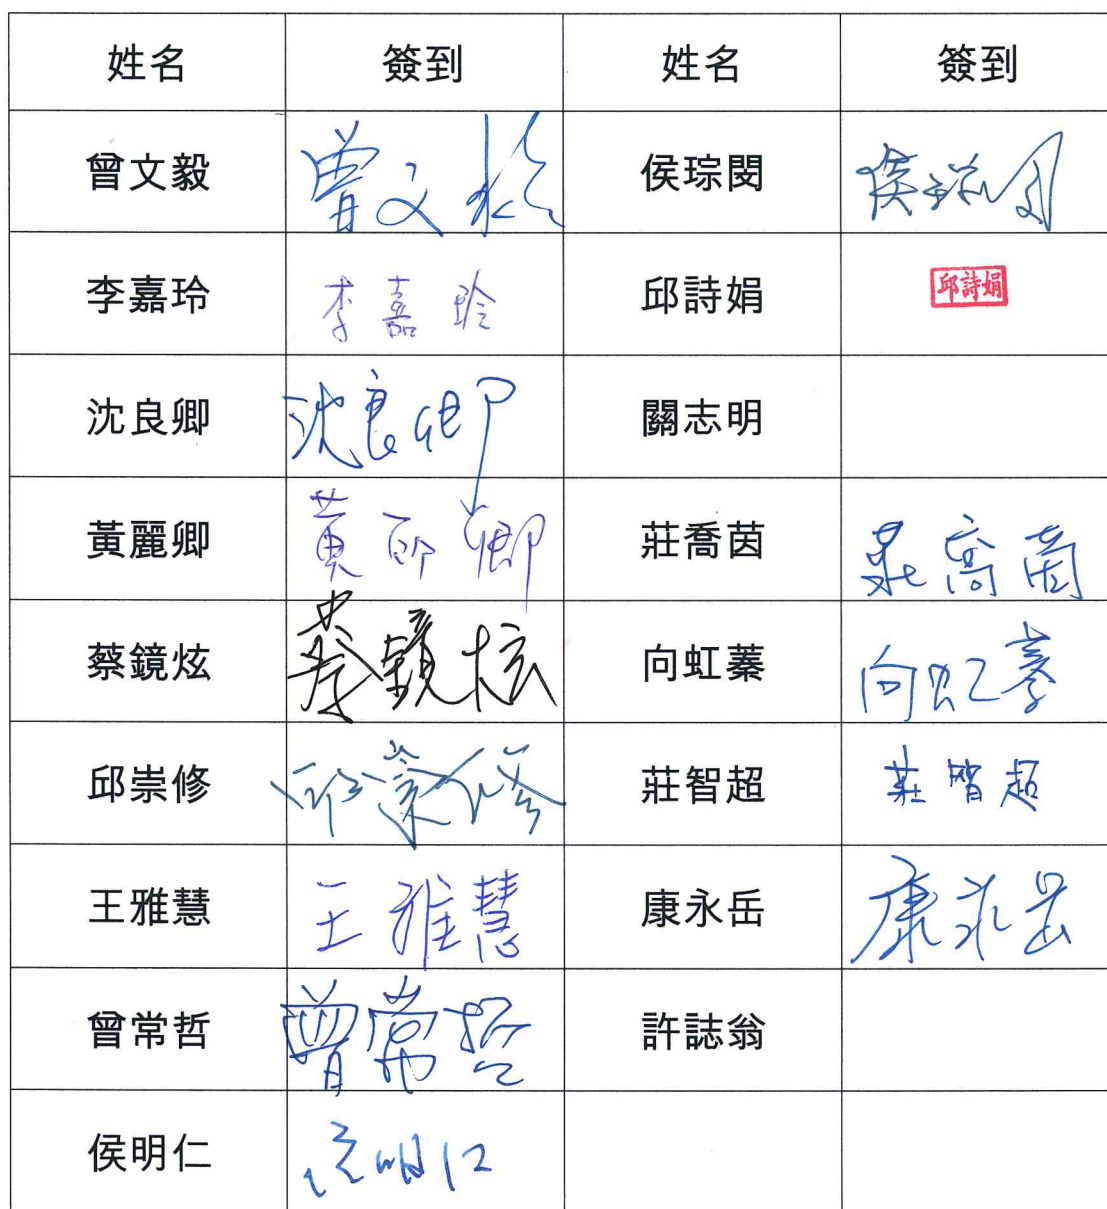 姓名 簽到 姓名 簽到
曾文毅 曾文毅 侯琮閔 侯琮閔
李嘉玲 李嘉玲 邱詩娟 邱詩娟
沈良卿 沈良卿 關志明
黃麗卿 黃麗卿 莊喬茵 莊喬茵
蔡鏡炫 蔡鏡炫 向虹蓁 向虹蓁
邱崇修 邱崇修 莊智超 莊智超
王雅慧 王雅慧 康永岳 康永岳
曾常哲 曾常哲 許誌翁
侯明仁 侯明仁